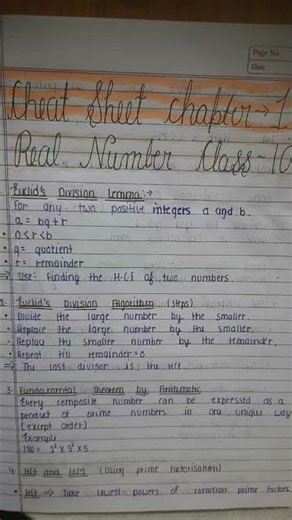 Page No.
Date:
Cheat Sheet Chapter → 1
Real Number Class-10
Euclid's Division Lemma:→
For any two positive integers a and b.
a = bq + r
• 0 ≤ r < b
• q = quotient
• r = remainder
⇒ Use: Finding the H.C.F of two numbers.
2. Euclid's Division Algorithm (steps)
• Divide the large number by the smaller.
• Replace the large number by the smaller.
• Replace the smaller number by the remainder.
• Repeat till remainder = 0
⇒ The last divisor is the HCF.
3. Fundamental theorem by Arithmetic
Every composite number can be expressed as a
product of prime numbers in one unique way
[except order]
Example
180 = 2² × 3² × 5.
4. HCF and LCM (Using prime factorisation)
• HCF ⇒ Take lowest powers of common prime factors.